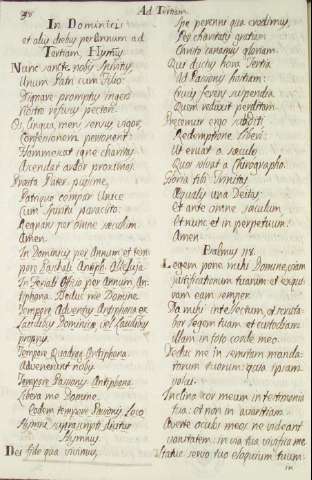 38
Ad Tertiam.
In Dominicis
et aliis diebus per Annum ad
Tertiam, Hymnus
Nunc sancte nobis Spiritus,
Unum Patri cum Filio:
Dignare promptus ingeri
Nostro refusus pectori.
Os, lingua, mens, sensus, vigor,
Confessionem personent:
Flammescat igne charitas
Accendat ardor proximos.
Præsta Pater piissime,
Patrique compar Unice
Cum Spiritu paraclito:
Regnans per omne sæculum.
Amen.
In Dominicis per Annum et tem
pore Paschali Antiph. Alleluja.
In Feriali Officio per Annum An-
tiphona. Deduc me Domine.
Tempore Adventus Antiphona ex
Laudibus Dominicæ, vel Laudibus
propriis.
Tempore Quadrag. Antiphona.
Advenerunt nobis
Tempore Passionis Antiphona.
Libera me Domine.
Eodem tempore Passionis loco
Hymni suprascripti dicitur
Hymnus.
Dei fide qua vivimus,
Spe perenni qua credimus,
Per charitatis gratiam
Christi canamus gloriam.
Qui ductus hora Tertia
Ad Passionis hostiam:
Crucis ferens suspendia
Ovem reduxit perditam.
Precemur ergo subditi
Redemptione liberi:
Ut eruat a sæculo
Quos solvit a Chirographo.
Gloria tibi Trinitas
Æqualis una Deitas
Et ante omne sæculum
Et nunc et in perpetuum.
Amen.
Psalmus 118.
Legem pone mihi Domine, viam
justificationum tuarum: et exqui-
ram eam semper.
Da mihi intellectum, et scruta-
bor legem tuam: et custodiam
illam in toto corde meo.
Deduc me in semitam manda-
torum tuorum: quia ipsam
volui.
Inclina cor meum in testimonia
tua: et non in avaritiam.
Averte oculos meos ne videant
vanitatem: in via tua vivifica me
Statue servo tuo eloquium tuum:
in